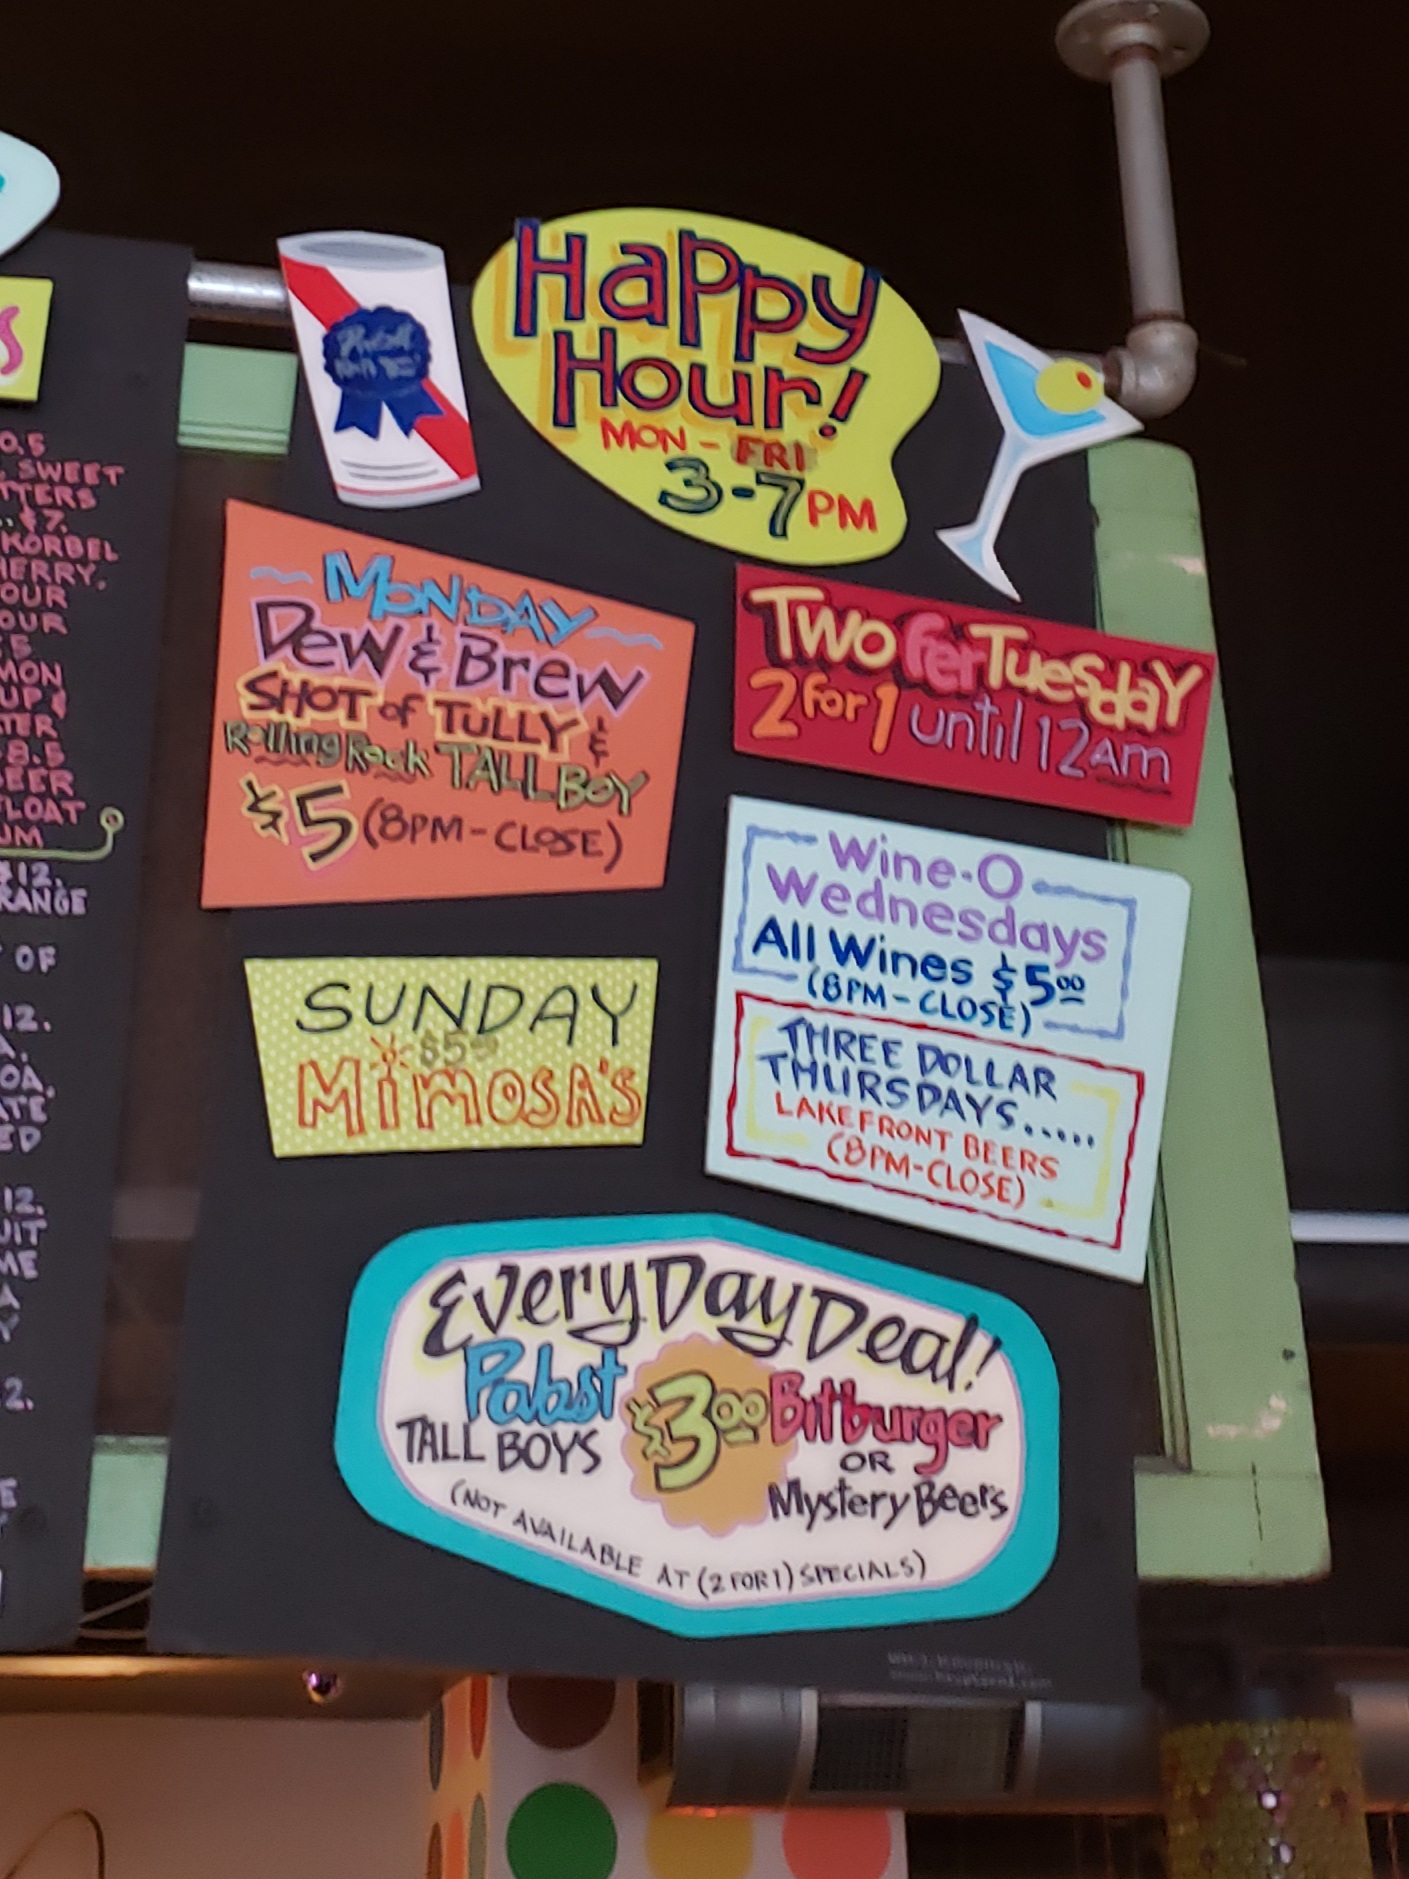 Happy
Hour!
MON - FRI
3-7 PM
MONDAY
Dew & Brew
SHOT of TULLY &
Rolling Rock TALL BOY
$5 (8PM - CLOSE)
Two fer Tuesday
2 for 1 until 12am
Wine-O
Wednesdays
All Wines $5.00
(8PM - CLOSE)
THREE DOLLAR
THURSDAYS.....
LAKEFRONT BEERS
(8PM-CLOSE)
SUNDAY
$5.00
MimosA's
Every Day Deal!
Pabst
TALL BOYS
$3.00
Bitburger
OR
Mystery Beers
(NOT AVAILABLE AT (2 FOR 1) SPECIALS)
0.5
SWEET
TTERS
..$7.
KORBEL
HERRY.
OUR
OUR
MON
UP &
ATER
8.5
BEER
FLOAT
UM
$12.
RANGE
OF
12.
OA,
ATE
ED
12.
UIT
ME
A
Y
2.
E